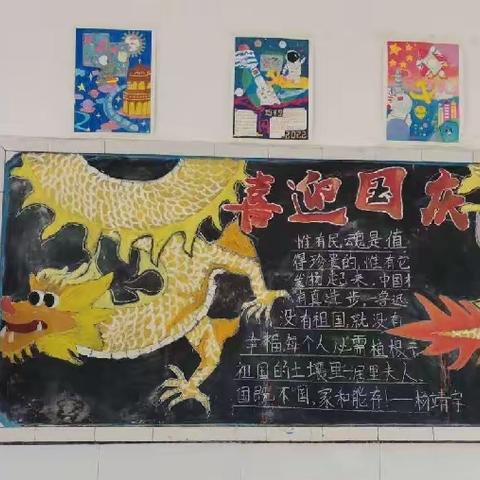 喜迎国庆
惟有民魂是值
得珍累的,惟有它
发扬起来,中国才
有真进步。—鲁迅
没有祖国,就没有
幸福,每个人必需植根于
祖国的土壤里—屠里夫人
国既不国,家和能存!——杨靖宇
2022